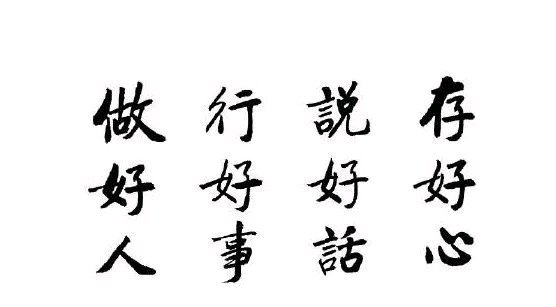 存好心
説好話
行好事
做好人